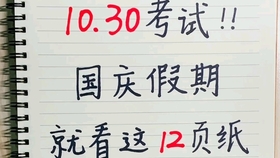 10.30考试!!
国庆假期
就看这12页纸